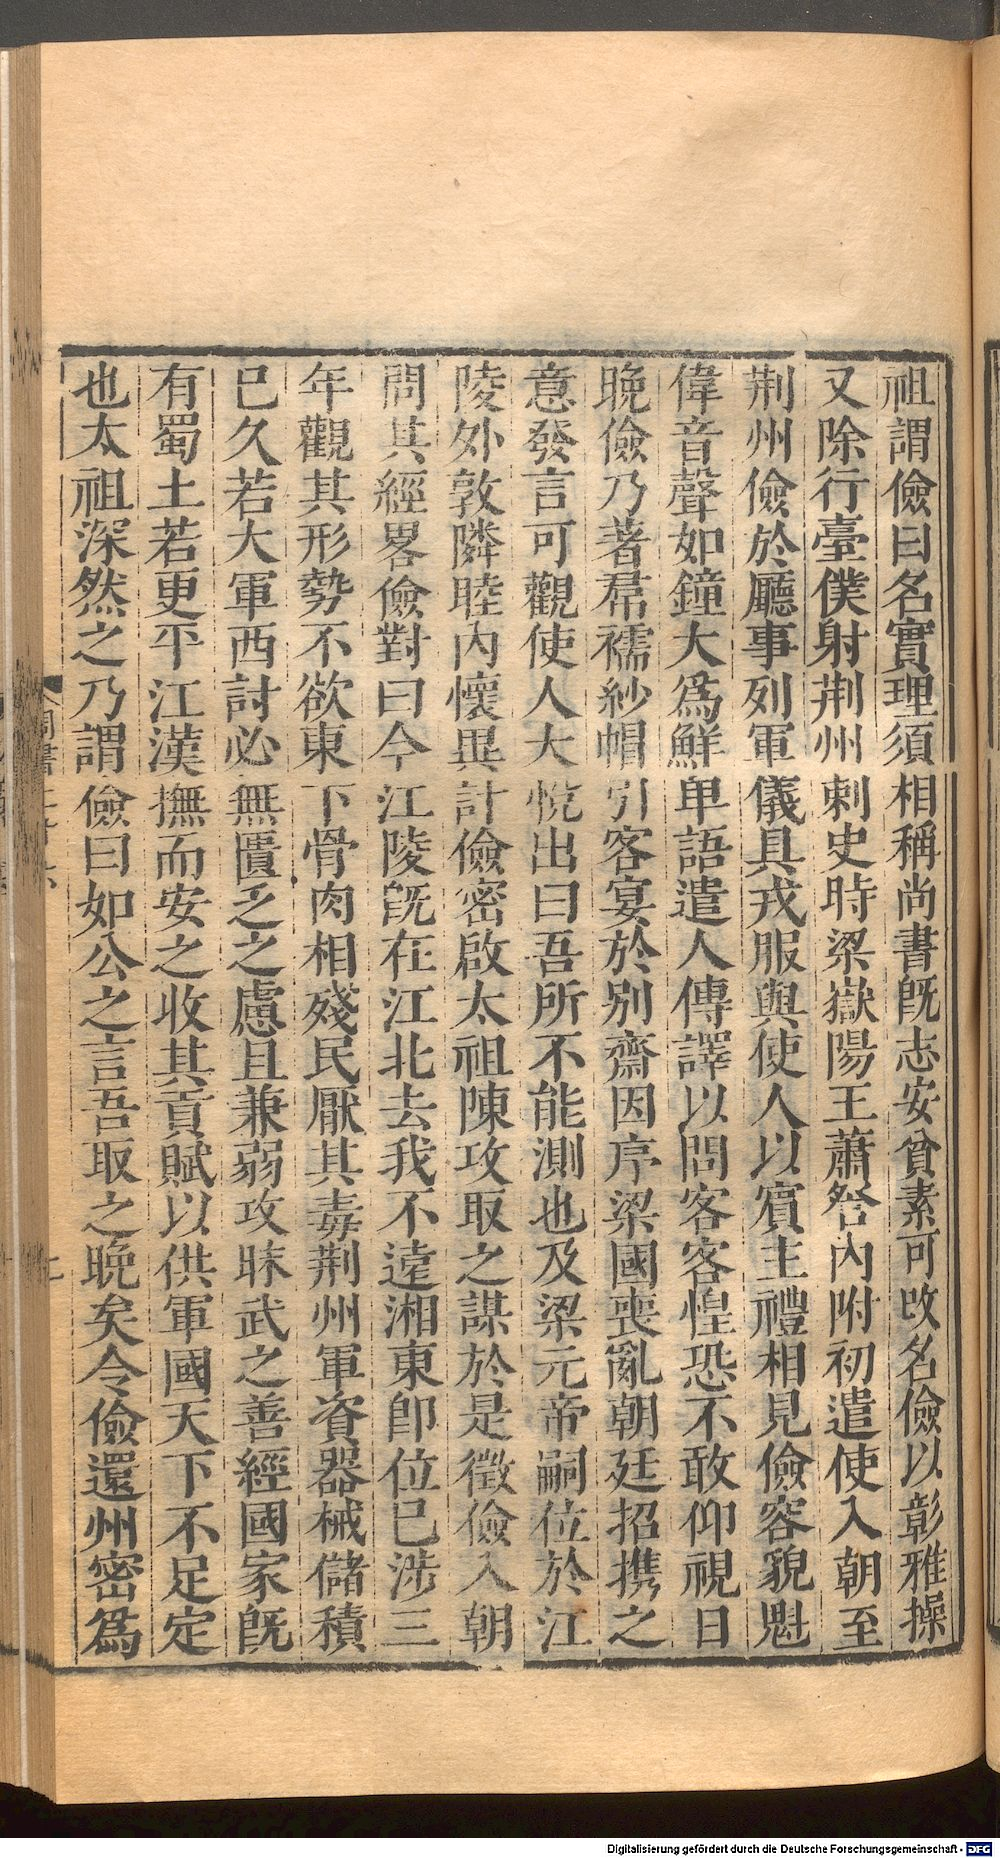 祖謂儉曰名實理須相稱尚書旣志安貧素可改名儉以彰雅操
又除行臺僕射荆州刺史時梁嶽陽王蕭詧內附初遣使入朝至
荆州儉於廳事列軍儀具戎服與使人以賓主禮相見儉容貌魁
偉音聲如鐘大爲鮮卑語遣人傳譯以問客客惶恐不敢仰視日
晚儉乃著帬襦紗帽引客宴於别齋因序梁國喪亂朝廷招携之
意發言可觀使人大悅出曰吾所不能測也及梁元帝嗣位於江
陵外敦隣睦內懷異計儉密啟太祖陳攻取之謀於是徵儉入朝
問其經畧儉對曰今江陵旣在江北去我不遠湘東卽位已涉三
年觀其形勢不欲東下骨肉相殘民厭其毒荆州軍資器械儲積
已久若大軍西討必無匱乏之慮且兼弱攻昧武之善經國家旣
有蜀土若更平江漢撫而安之收其貢賦以供軍國天下不足定
也太祖深然之乃謂儉曰如公之言吾取之晚矣令儉還州密爲
周書
Digitalisierung gefördert durch die Deutsche Forschungsgemeinschaft - DFG